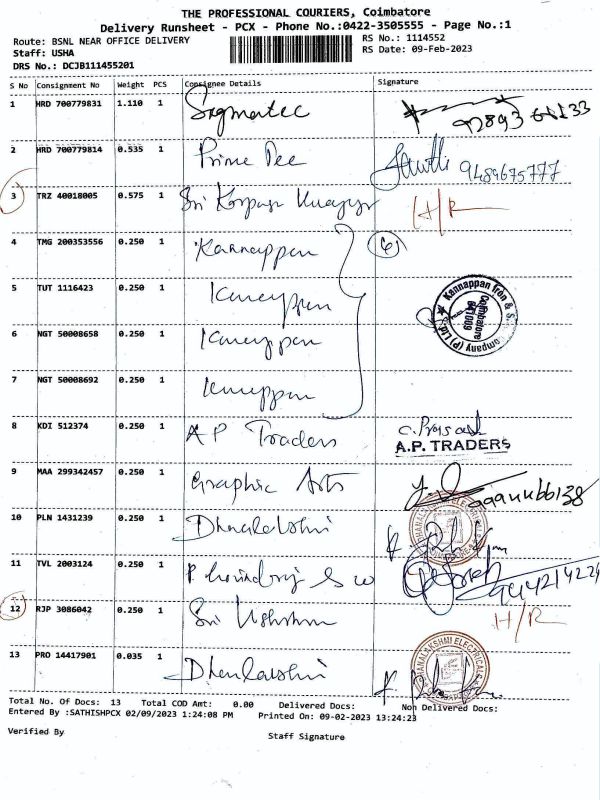 THE PROFESSIONAL COURIERS, Coimbatore
Delivery Runsheet - PCX - Phone No.:0422-3505555 - Page No.:1
Route: BSNL NEAR OFFICE DELIVERY
RS No.: 1114552
Staff: USHA
RS Date: 09-Feb-2023
DRS No.: DCJB111455201
S No Consignment No Weight PCS Consignee Details Signature
1 HRD 700779831 1.110 1 Sigmatec
2 HRD 700779814 0.535 1 Prime Tee 9489675777
3 TRZ 40018005 0.575 1 Sri H/R
4 TMG 200353556 0.250 1 Kannappan
5 TUT 1116423 0.250 1
Kannappan Iron & S. Company (P) Ltd. Coimbatore 641009
6 NGT 50008658 0.250 1
7 NGT 50008692 0.250 1
8 KDI 512374 0.250 1 A P Traders C. Prasad
A.P. TRADERS
9 MAA 299342457 0.250 1 Graphic Arts
10 PLN 1431239 0.250 1 Dhanalakshmi
11 TVL 2003124 0.250 1
12 RJP 3086042 0.250 1 Sri H/R
13 PRO 14417901 0.035 1 Dhanlakshmi
DHANALAKSHMI ELECTRICALS
Total No. Of Docs: 13 Total COD Amt: 0.00 Delivered Docs: Non Delivered Docs:
Entered By :SATHISHPCX 02/09/2023 1:24:08 PM Printed On: 09-02-2023 13:24:23
Verified By
Staff Signature